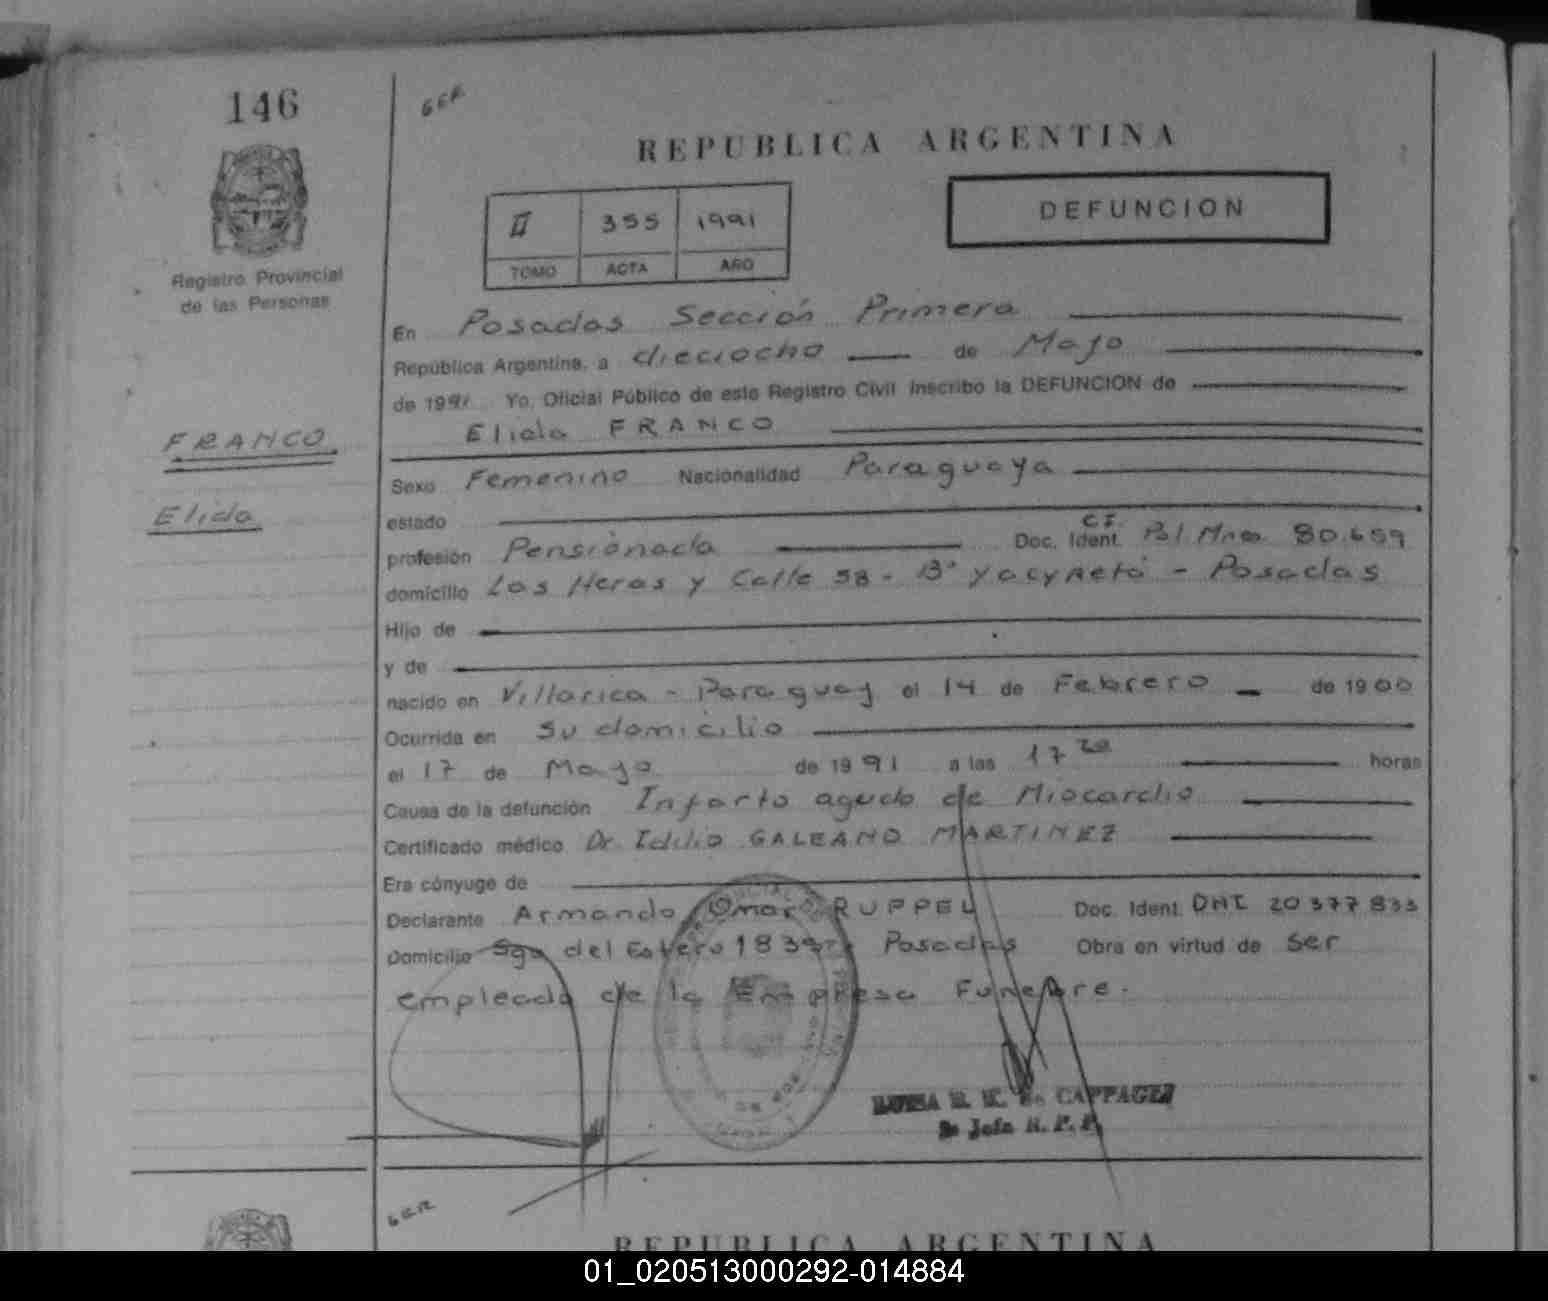 146
GER
REPUBLICA ARGENTINA
II 355 1991
TOMO ACTA AÑO
DEFUNCION
Registro Provincial
de las Personas
En Posadas Sección Primera
República Argentina, a dieciocho de Mayo
de 1991 Yo, Oficial Público de este Registro Civil inscribo la DEFUNCION de
FRANCO
Elida FRANCO
Sexo Femenino Nacionalidad Paraguaya
Elida
estado
C.I.
profesión Pensionada Doc. Ident. Pol. Mnes. 80.659
domicilio Las Heras y Calle 58 - B° Yacyretá - Posadas
Hijo de
y de
nacido en Villarica - Paraguay el 14 de Febrero de 1900
Ocurrida en su domicilio
el 17 de Mayo de 1991 a las 17 20 horas
Causa de la defunción Infarto agudo de Miocardio
Certificado médico Dr. Idilio GALEANO MARTINEZ
Era cónyuge de
Declarante Armando Omar RUPPEL Doc. Ident. DNI 20 377 833
Domicilio Sgo del Estero 1839 Posadas Obra en virtud de ser
empleado de la Empresa Funebre.
CAPPAGLI
Jefa R. P. P.
GER
REPUBLICA ARGENTINA
01_020513000292-014884